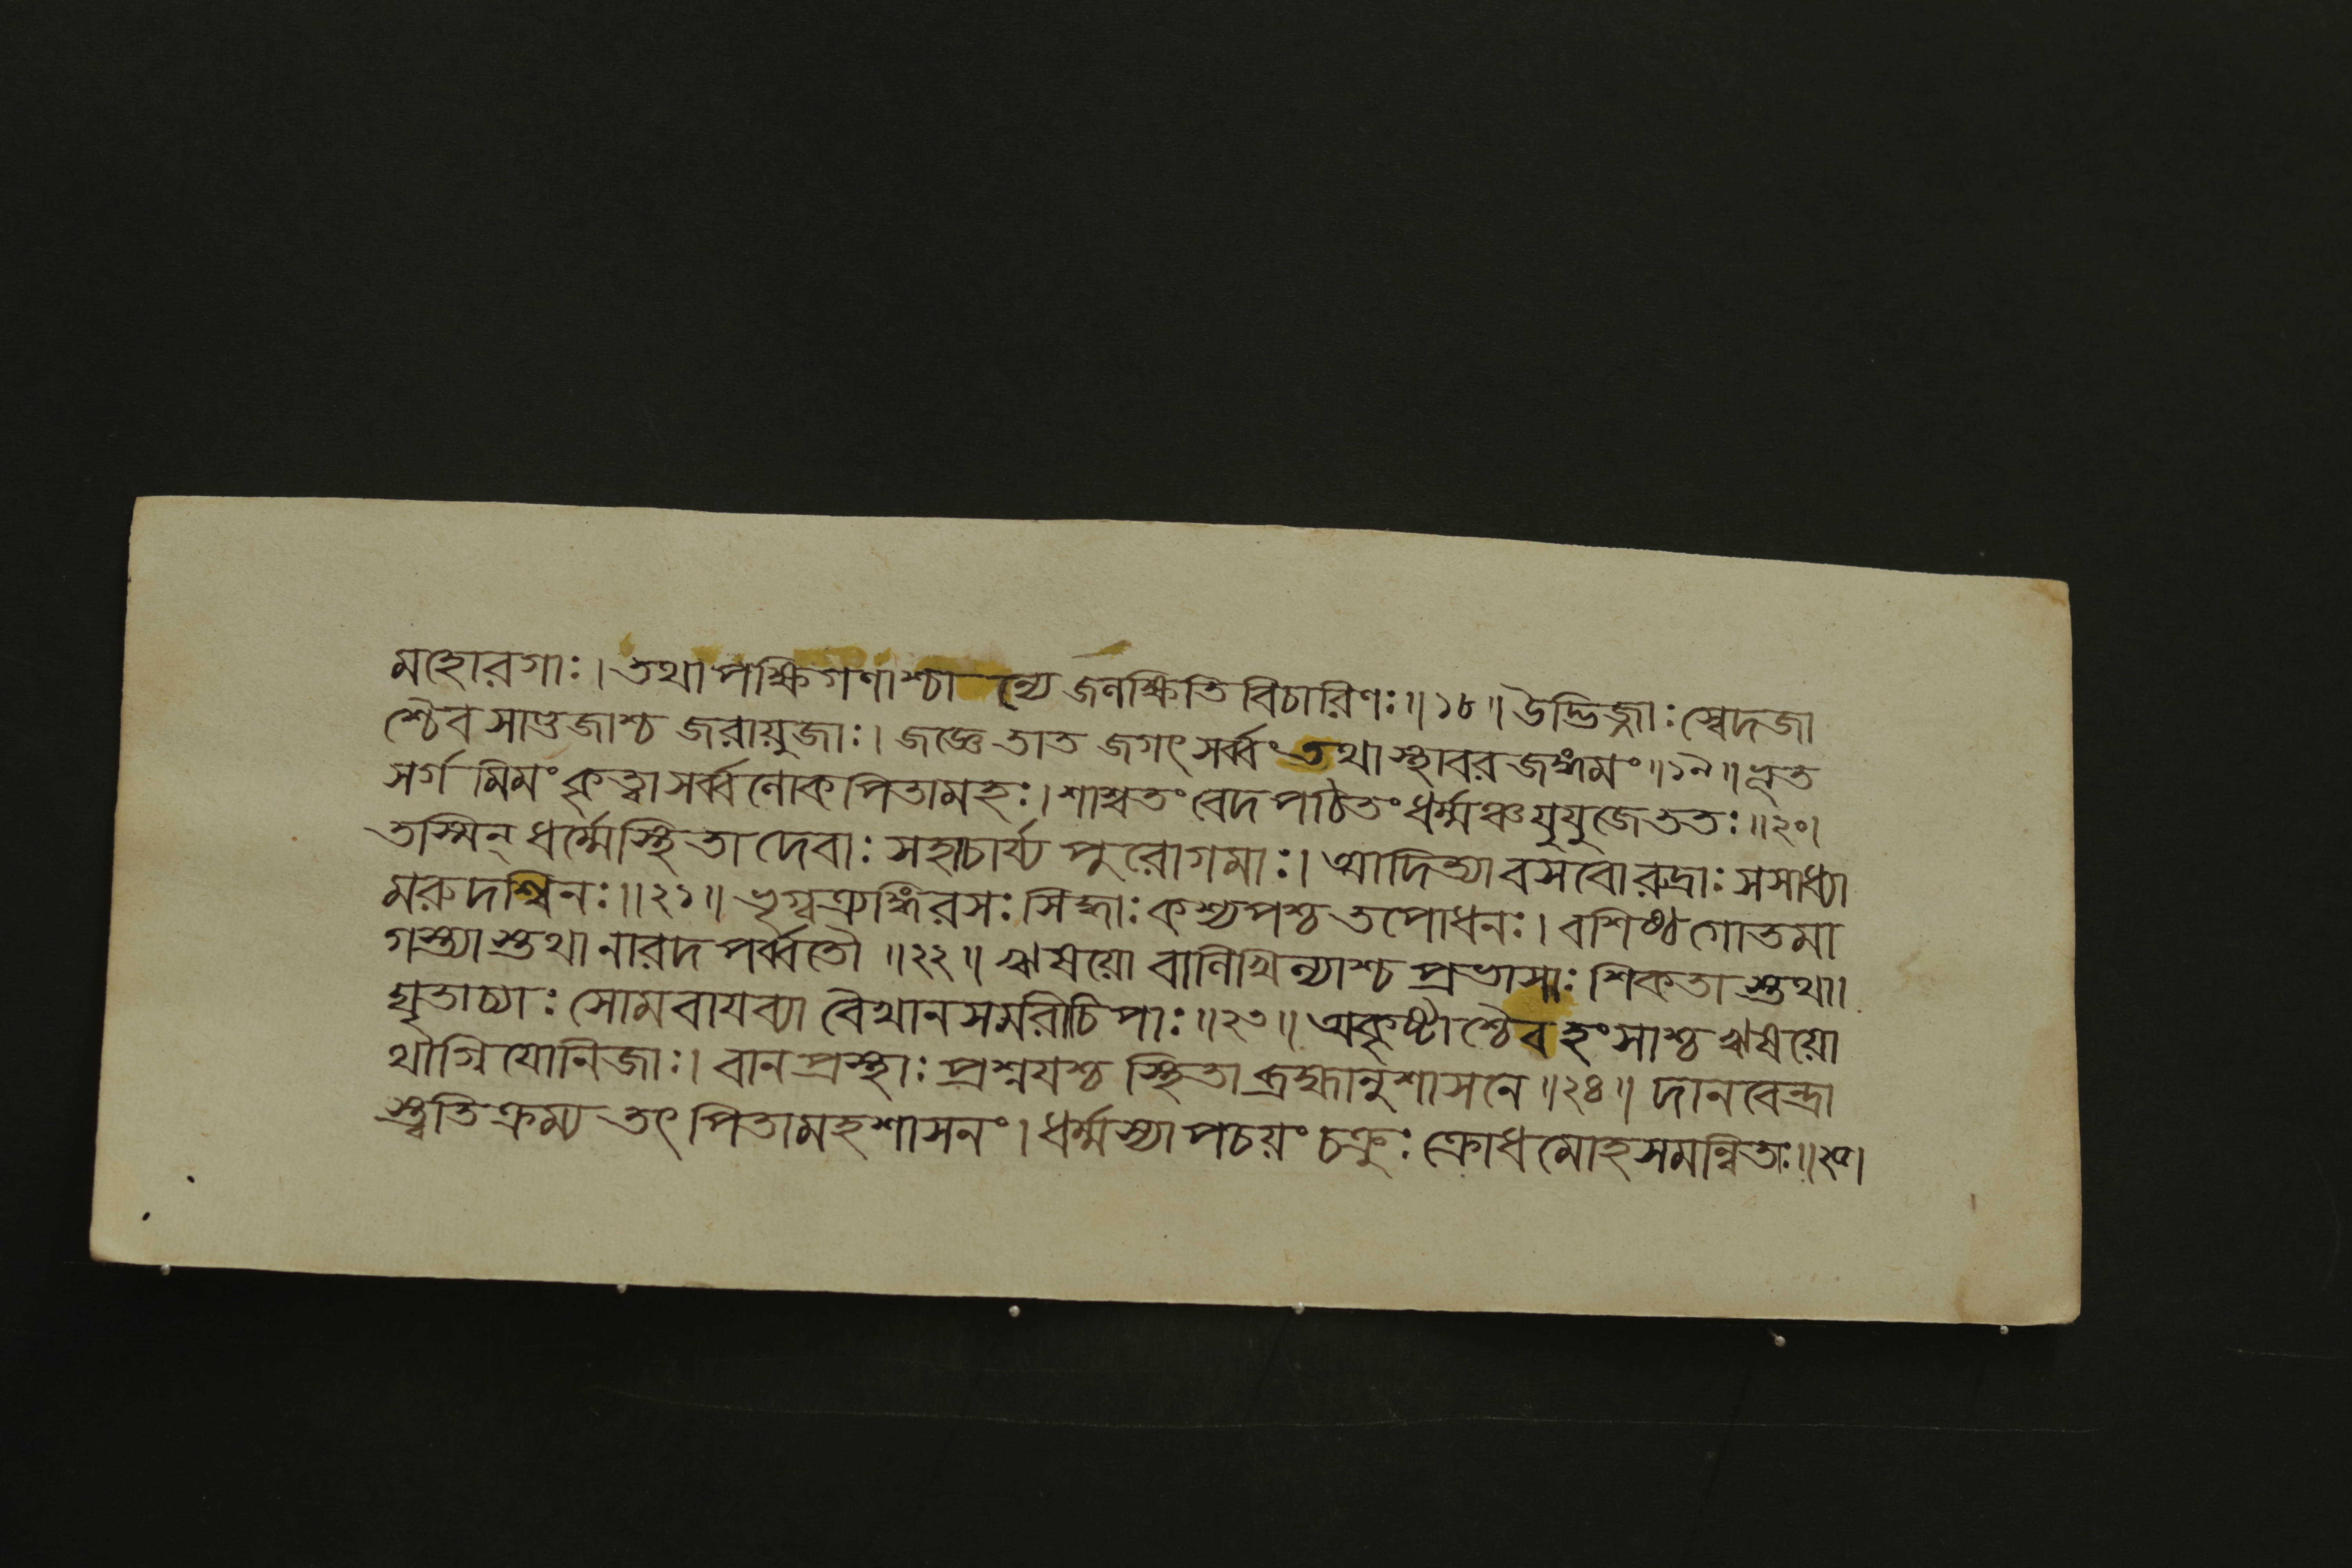 মহোরগাঃ। তথা পক্ষিগণাশ্চান্যে জলক্ষিতি বিচারিণঃ॥১৮॥ উদ্ভিজ্জাঃ স্বেদজা
শ্চৈব সাণ্ডজাশ্চ জরায়ুজাঃ। জজ্ঞে তাত জগৎ সর্ব্বং তথা স্থাবর জঙ্গমং॥১৯॥ ভূত
সর্গ মিমং কৃত্বা সর্ব্বলোক পিতামহঃ। শাশ্বতং বেদ পঠিতং ধর্ম্মঞ্চ যুযুজে ততঃ॥২০।
তস্মিন্ ধর্ম্মে স্থিতা দেবাঃ সহাচার্য্য পুরোগমাঃ। আদিত্যা বসবো রুদ্রাঃ সসাধ্যা
মরুদশ্বিনঃ॥২১॥ ভৃগ্বত্র্যঙ্গিরসঃ সিদ্ধাঃ কশ্যপশ্চ তপোধনঃ। বশিষ্ঠ গোতমা
গস্ত্যাস্তথা নারদ পর্ব্বতৌ॥২২॥ ঋষয়ো বালিখিল্যাশ্চ প্রভাসাঃ শিকতাস্তথা।
ঘৃতাচ্যাঃ সোমবাযব্যা বৈখানস মরীচিপাঃ॥২৩॥ অকৃষ্টাশ্চৈব হংসাশ্চ ঋষয়ো
থাগ্নি যোনিজাঃ। বানপ্রস্থাঃ প্রশ্নযশ্চ স্থিতা ব্রহ্মানুশাসনে॥২৪॥ দানবেন্দ্রা
স্ত্বতিক্রম্য তৎ পিতামহশাসনং। ধর্ম্মস্যাপচয়ং চক্রুঃ ক্রোধ মোহ সমন্বিতাঃ॥২৫।